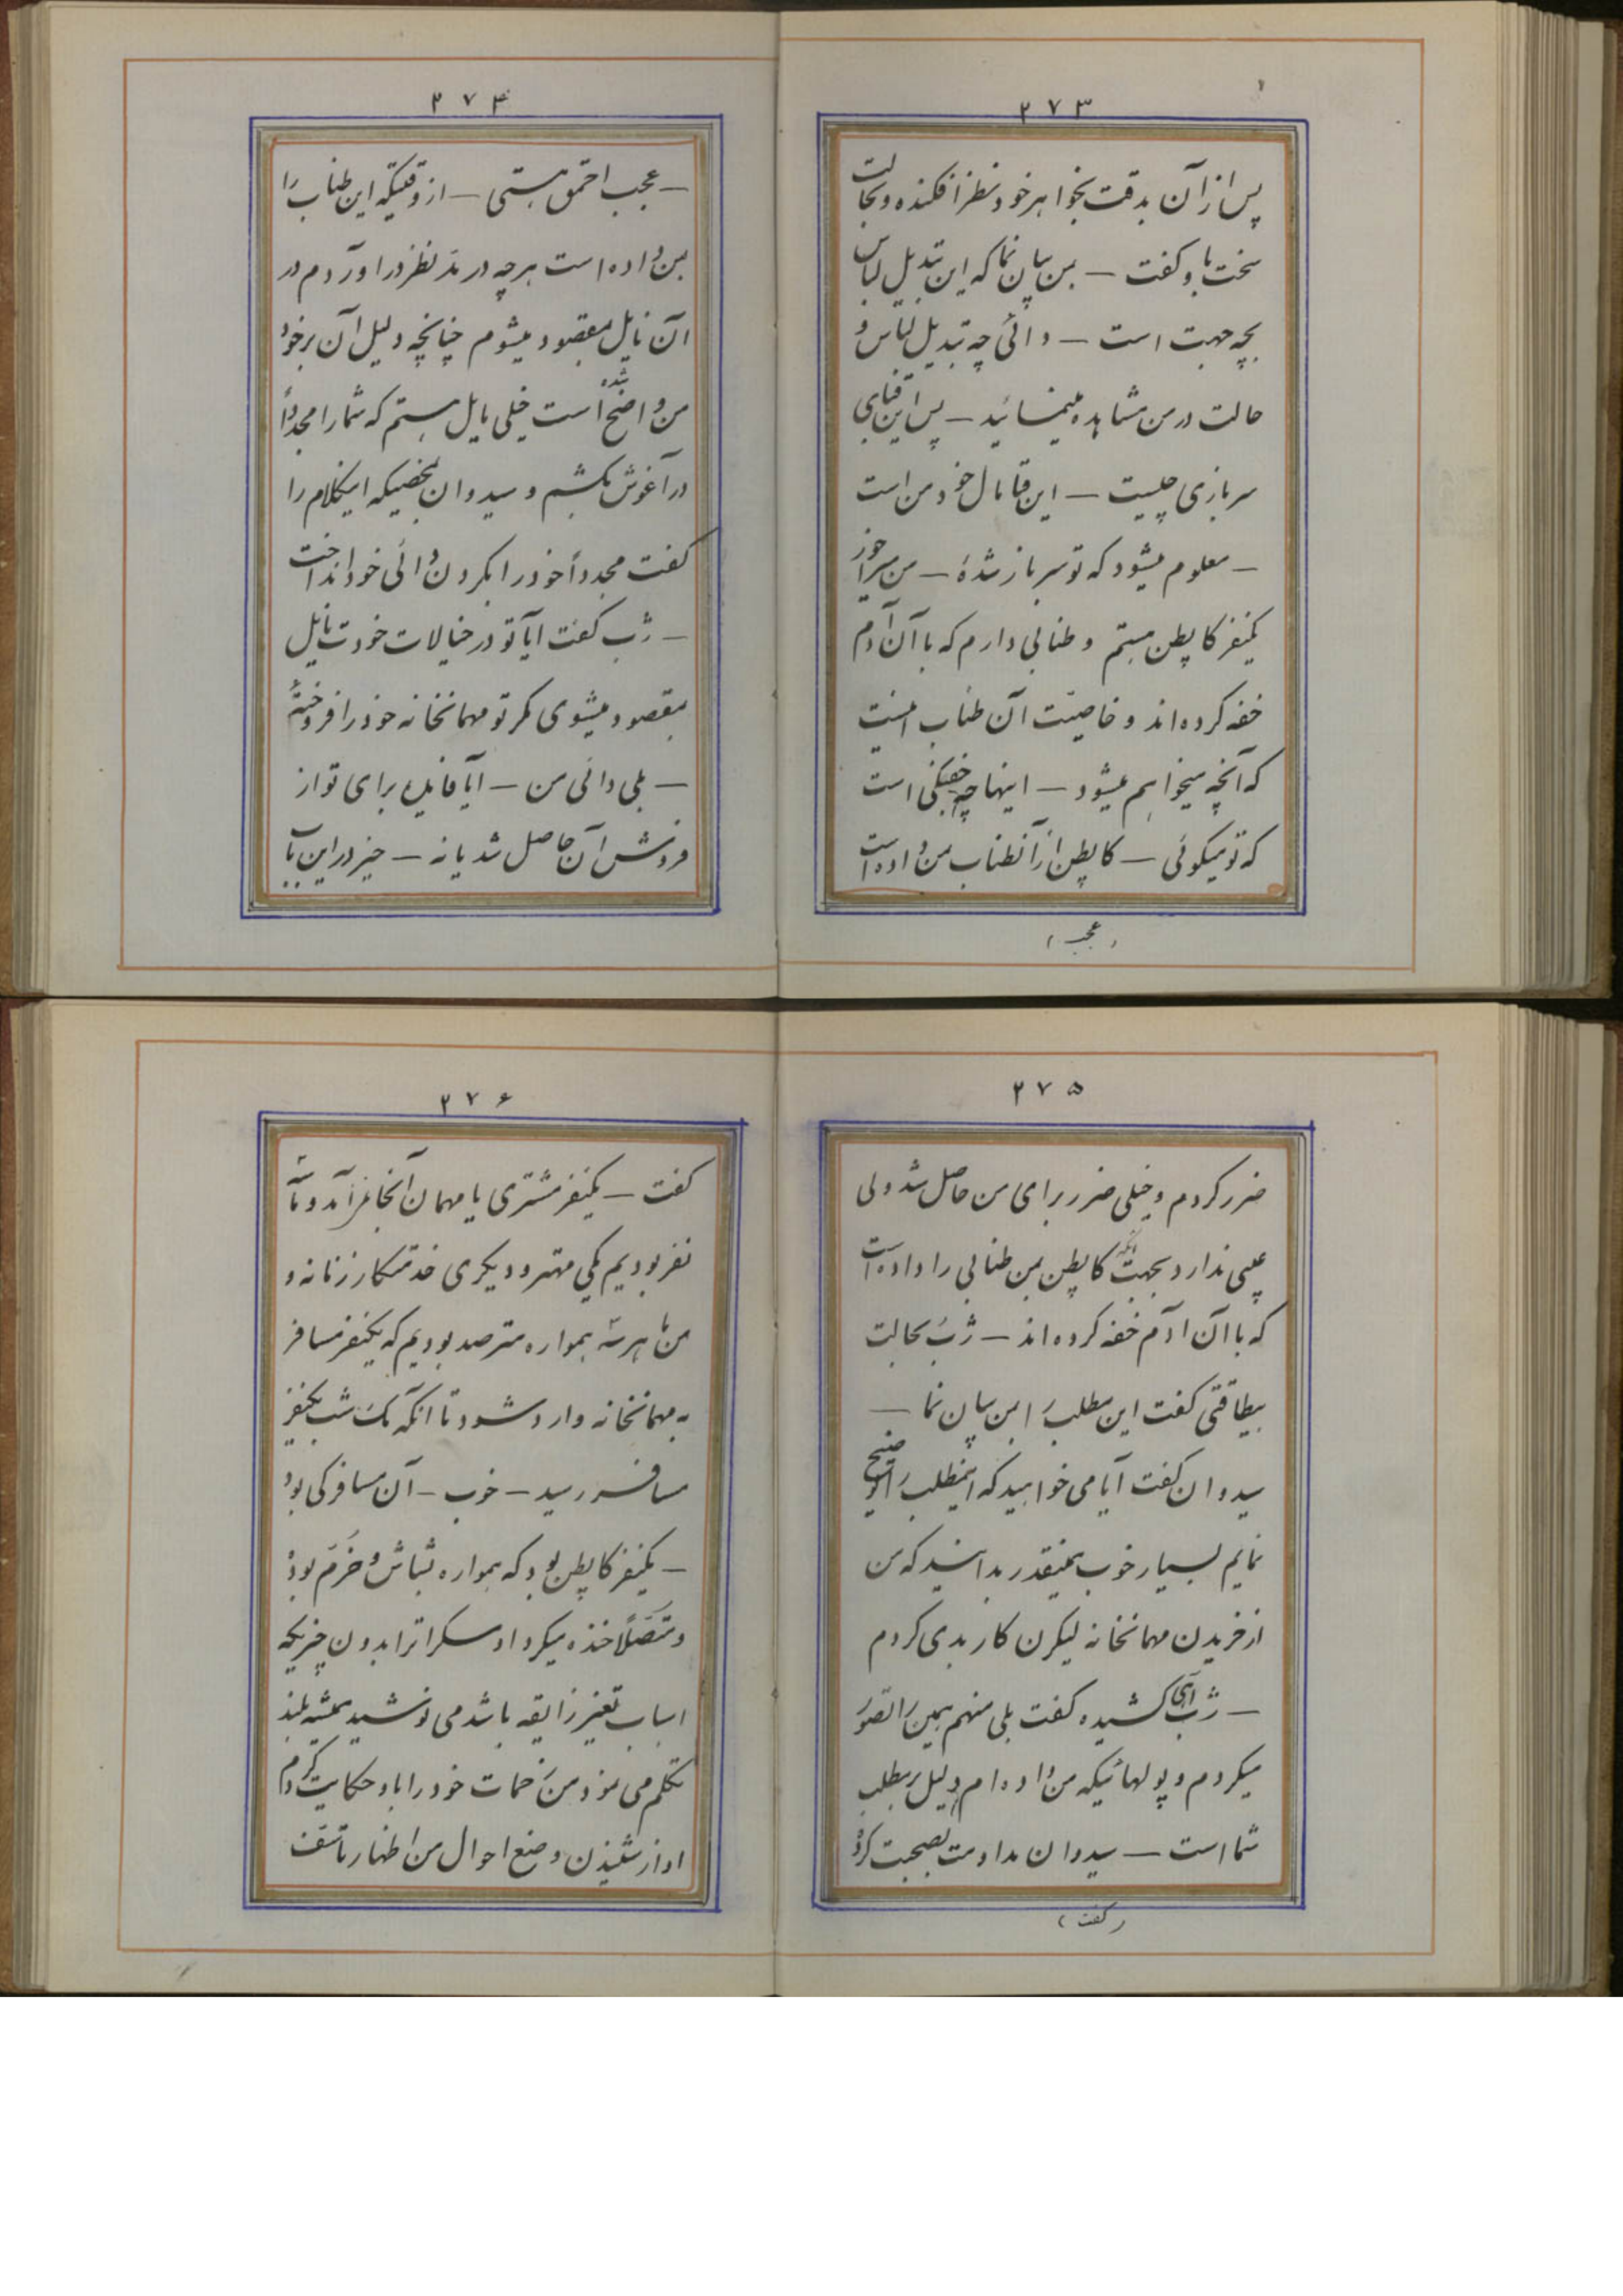 ۲۷۳
پس از آن بدقت بخواهر خود نظر افکنده و بحالت
سخت باو گفت – بمن بیان نما که این تبدیل لباس
بچه جهت است – دائی چه تبدیل لباس و
حالت در من مشاهده مینمائید – پس این قبای
سربازی چیست – این قبا مال خود من است
– معلوم میشود که تو سرباز شدهٔ – من سرجوز
یکنفر کاپطن هستم و طنابی دارم که با آن آدم
خفه کرده‌اند و خاصیت آن طناب اینست
که آنچه میخواهم میشود – اینها چه خفیگی است
که تو میگوئی – کاپطن از آنطناب بمن داده است
(عجب)
۲۷۴
– عجب احمق هستی – از وقتیکه این طناب را
بمن داده است هرچه در مد نظر در آوردم در
آن نایل بمقصود میشوم چنانچه دلیل آن بر خود
من واضح شده است خیلی مایل هستم که شما را مجدداً
در آغوش بکشم و سیدوان بمحضیکه اینکلام را
گفت مجدداً خود را بگردن دائی خود انداخت
– ژب گفت آیا تو در خیالات خودت نایل
بمقصود میشوی مگر تو مهمانخانه خود را فروختهٔ
– بلی دائی من – آیا فایده برای تو از
فروش آن حاصل شد یا نه – خیر در این باب
۲۷۵
ضرر کردم و خیلی ضرر برای من حاصل شد ولی
عیبی ندارد بجهت آنکه کاپطن بمن طنابی را داده است
که با آن آدم خفه کرده‌اند – ژب بحالت
بیطاقتی گفت این مطلب را بمن بیان نما –
سیدوان گفت آیا می خواهید که اینمطلب را توضیح
نمایم بسیار خوب همینقدر بدانید که من
از خریدن مهمانخانه لیکرن کار بدی کردم
– ژب آهی کشیده گفت بلی منهم همین را تصور
میکردم و پولهائیکه من داده‌ام دلیل بر مطلب
شما است – سیدوان مداومت بصحبت کرده
(گفت)
۲۷۶
گفت – یکنفر مشتری یا مهمان آنجا نمی‌آمد و ما سه
نفر بودیم یکی مهتر و دیگری خدمتکار زنانه و
من ما هر سه همواره مترصد بودیم که یکنفر مسافر
به مهمانخانه وارد شود تا آنکه یک شب یکنفر
مسافر رسید – خوب – آن مسافر کی بود
– یکنفر کاپطن بود که همواره بشاش و خرم بود
و متصلاً خنده میکرد او مسکرات را بدون چیزیکه
اسباب تغییر ذایقه باشد می نوشید همیشه بلند
تکلم می نمود من زحمات خود را باو حکایت کردم
او از شنیدن وضع احوال من اظهار تأسف